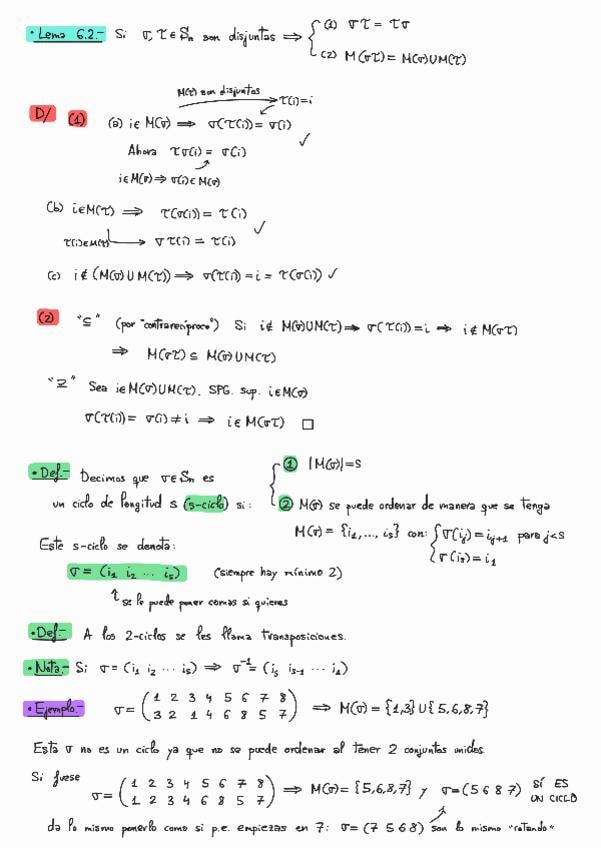 • Lema 6.2.- Si σ, τ ∈ Sₙ son disjuntas ⟹ { (1) στ = τσ
(2) M(στ) = M(σ) ∪ M(τ)
M(τ) son disjuntas
D/ (1) (a) i ∈ M(σ) ⟹ σ(τ(i)) = σ(i) τ(i) = i
✓
Ahora τσ(i) = σ(i)
i ∈ M(σ) ⟹ σ(i) ∈ M(σ)
(b) i ∈ M(τ) ⟹ τ(σ(i)) = τ(i)
✓
τ(i) ∈ M(τ) ⟶ στ(i) = τ(i)
(c) i ∉ (M(σ) ∪ M(τ)) ⟹ σ(τ(i)) = i = τ(σ(i)) ✓
(2) "⊆" (por "contrarecíproco") Si i ∉ M(σ) ∪ M(τ) ⟹ σ(τ(i)) = i ⟹ i ∉ M(στ)
⟹ M(στ) ⊆ M(σ) ∪ M(τ)
"⊇" Sea i ∈ M(σ) ∪ M(τ). SPG. sup. i ∈ M(σ)
σ(τ(i)) = σ(i) ≠ i ⟹ i ∈ M(στ) □
• Def.- Decimos que σ ∈ Sₙ es { ① |M(σ)| = s
un ciclo de longitud s (s-ciclo) si: ② M(σ) se puede ordenar de manera que se tenga
M(σ) = {i₁, ..., iₛ} con: { σ(iⱼ) = iⱼ₊₁ para j < s
σ(iₛ) = i₁
Este s-ciclo se denota:
σ = (i₁ i₂ ... iₛ) (siempre hay mínimo 2)
↑ se le puede poner comas si quieres
• Def.- A los 2-ciclos se les llama transposiciones.
• Nota.- Si σ = (i₁ i₂ ... iₛ) ⟹ σ⁻¹ = (iₛ iₛ₋₁ ... i₁)
• Ejemplo.- σ = ( 1 2 3 4 5 6 7 8
3 2 1 4 6 8 5 7 ) ⟹ M(σ) = {1,3} ∪ {5,6,8,7}
Esta σ no es un ciclo ya que no se puede ordenar al tener 2 conjuntos unidos.
Si fuese σ = ( 1 2 3 4 5 6 7 8
1 2 3 4 6 8 5 7 ) ⟹ M(σ) = {5,6,8,7} y σ = (5 6 8 7) SÍ ES
UN CICLO
da lo mismo ponerlo como si p.e. empiezas en 7: σ = (7 5 6 8) son lo mismo "rotando"